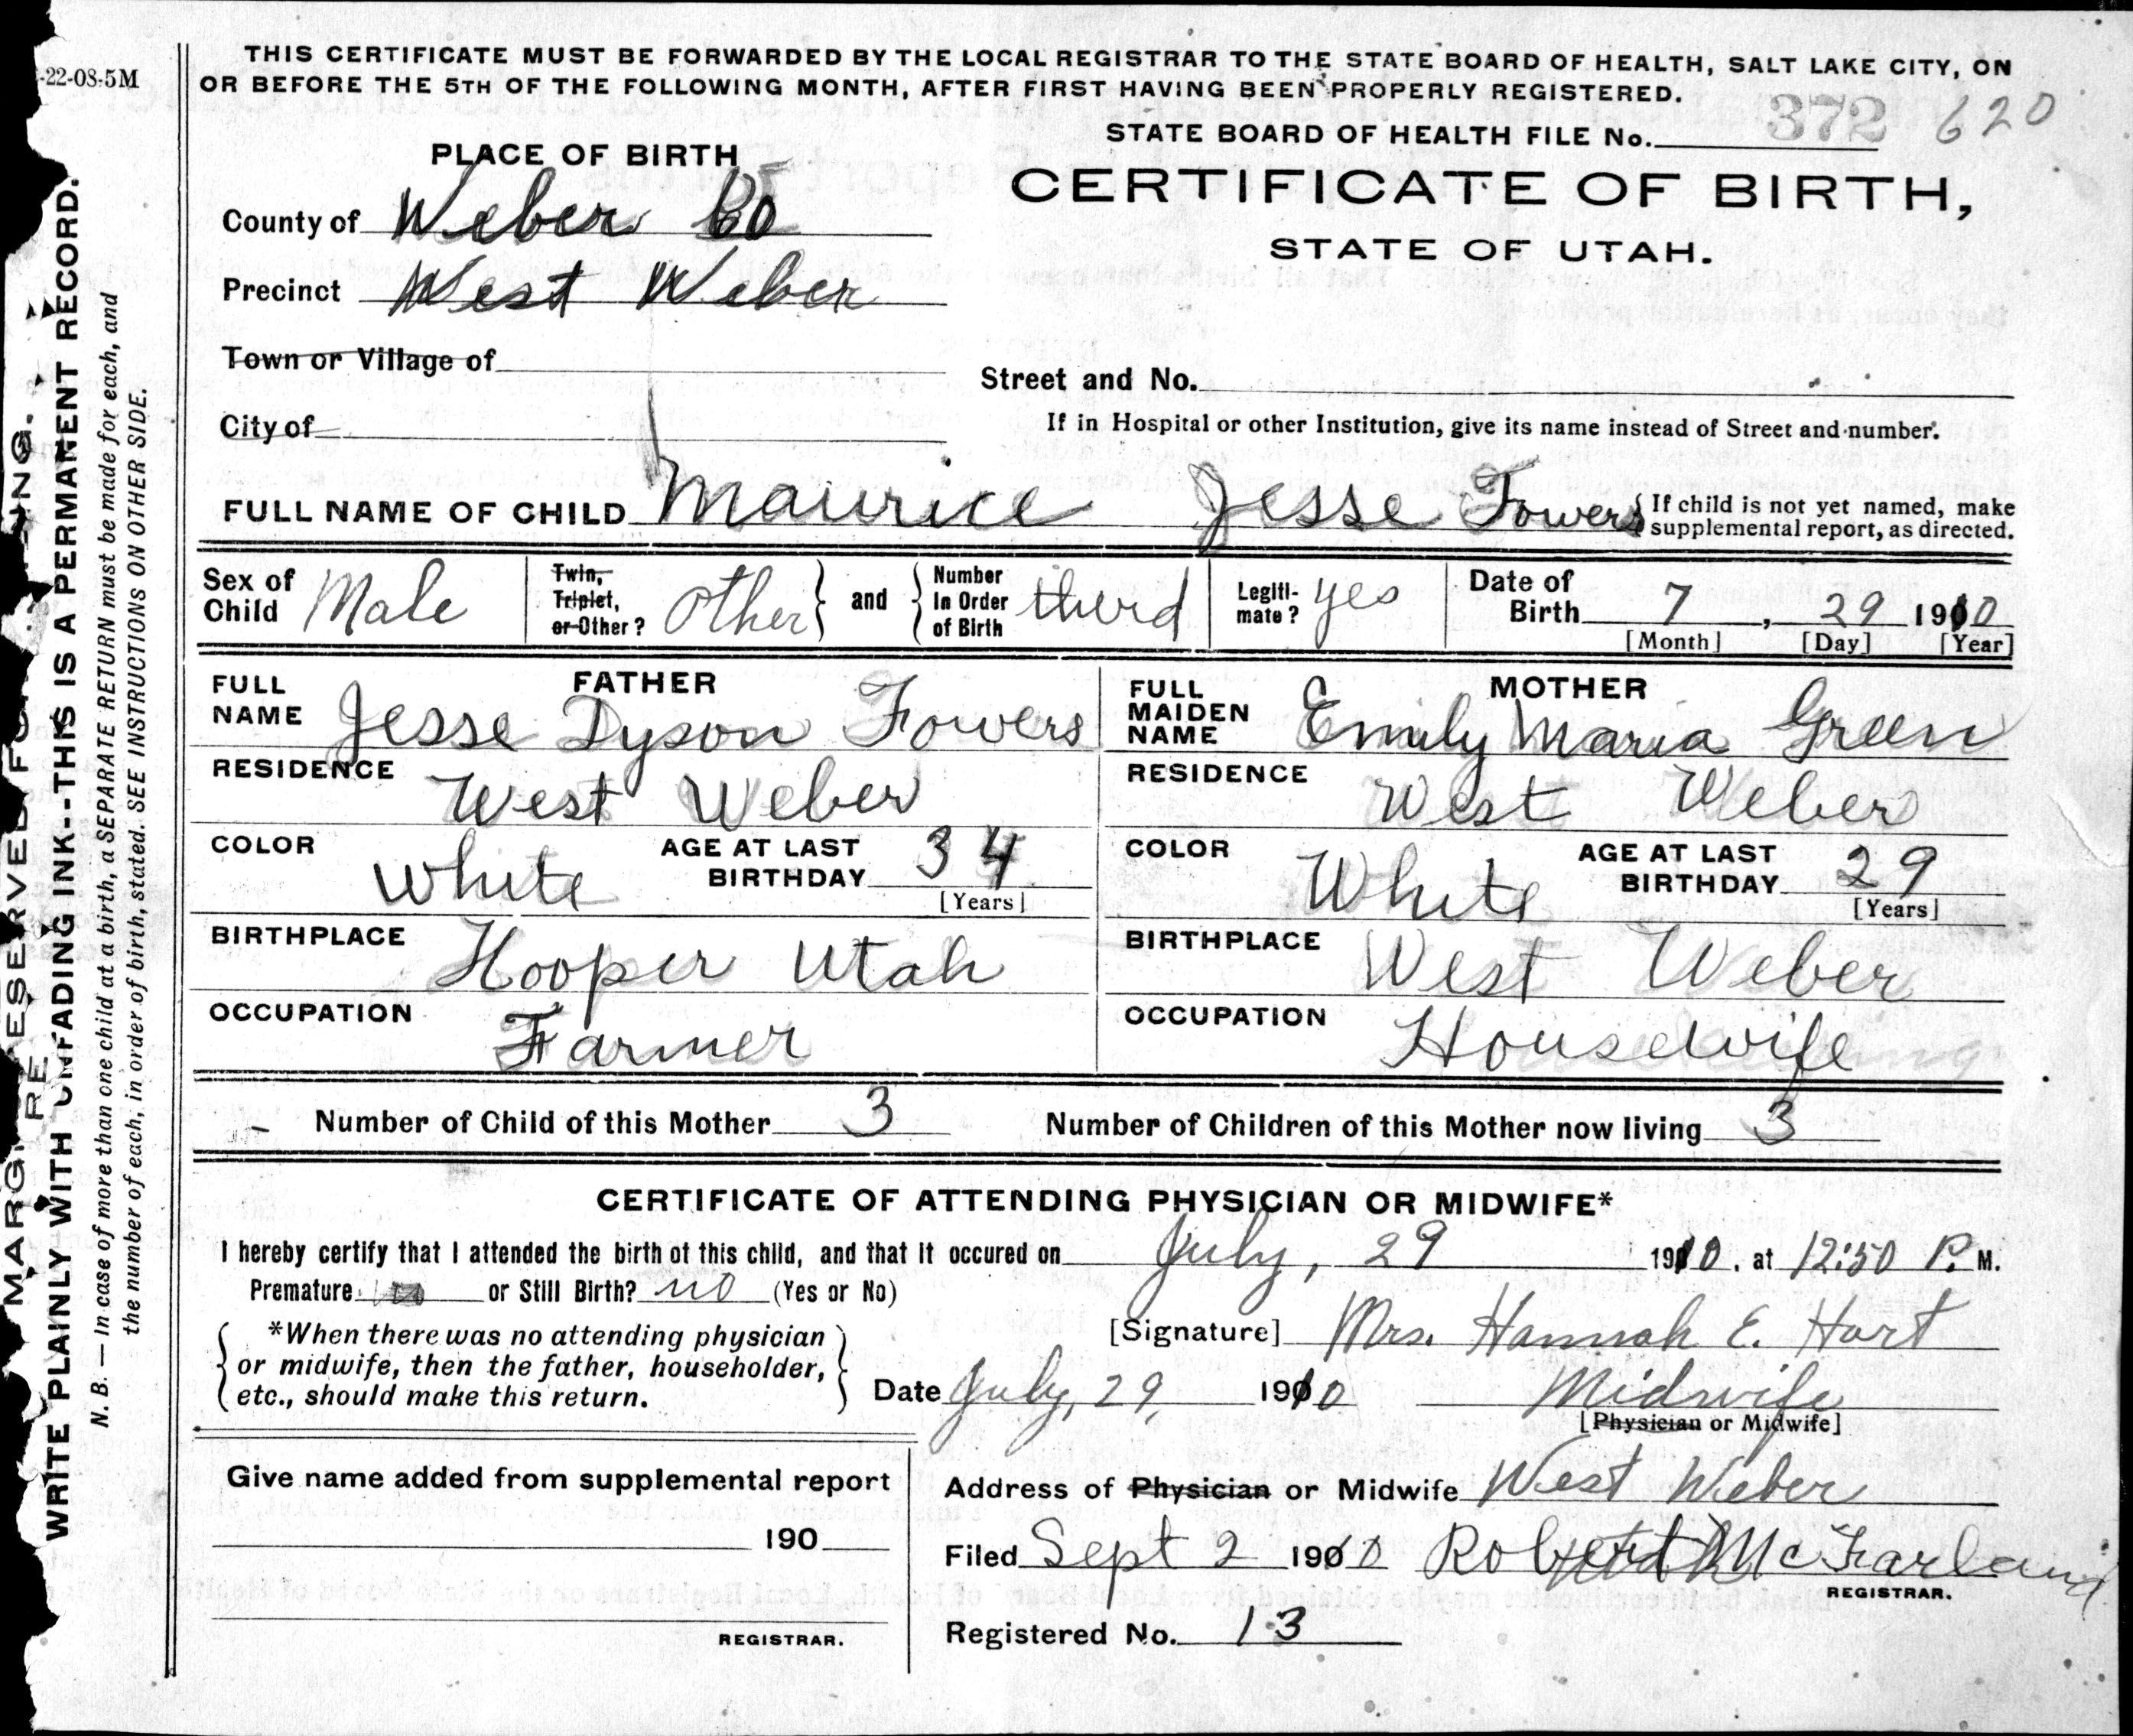 -22-08-5M
THIS CERTIFICATE MUST BE FORWARDED BY THE LOCAL REGISTRAR TO THE STATE BOARD OF HEALTH, SALT LAKE CITY, ON
OR BEFORE THE 5TH OF THE FOLLOWING MONTH, AFTER FIRST HAVING BEEN PROPERLY REGISTERED.
STATE BOARD OF HEALTH FILE No. 372 620
PLACE OF BIRTH
CERTIFICATE OF BIRTH,
STATE OF UTAH.
County of Weber Co
Precinct West Weber
Town or Village of
Street and No.
City of
If in Hospital or other Institution, give its name instead of Street and number.
FULL NAME OF CHILD Maurice Jesse Fowers { If child is not yet named, make
supplemental report, as directed.
Sex of Child Male
Twin, Triplet, or Other? Other } and { Number in Order of Birth third
Legitimate? yes
Date of Birth 7, 29 1910
[Month] [Day] [Year]
FATHER
FULL NAME Jesse Dyson Fowers
RESIDENCE West Weber
COLOR White AGE AT LAST BIRTHDAY 34
[Years]
BIRTHPLACE Hooper Utah
OCCUPATION Farmer
MOTHER
FULL MAIDEN NAME Emily Maria Green
RESIDENCE West Weber
COLOR White AGE AT LAST BIRTHDAY 29
[Years]
BIRTHPLACE West Weber
OCCUPATION Housewife
Number of Child of this Mother 3 Number of Children of this Mother now living 3
CERTIFICATE OF ATTENDING PHYSICIAN OR MIDWIFE*
I hereby certify that I attended the birth of this child, and that it occured on July, 29 1910, at 12:50 P. M.
Premature or Still Birth? no (Yes or No)
*When there was no attending physician
or midwife, then the father, householder,
etc., should make this return.
[Signature] Mrs. Hannah E. Hart
Date July, 29, 1910 Midwife
[Physician or Midwife]
Give name added from supplemental report
190
REGISTRAR.
Address of Physician or Midwife West Weber
Filed Sept 2 1910 Robert McFarland
REGISTRAR.
Registered No. 13
WRITE PLAINLY WITH UNFADING INK--THIS IS A PERMANENT RECORD.
N. B. — In case of more than one child at a birth, a SEPARATE RETURN must be made for each, and
the number of each, in order of birth, stated. SEE INSTRUCTIONS ON OTHER SIDE.